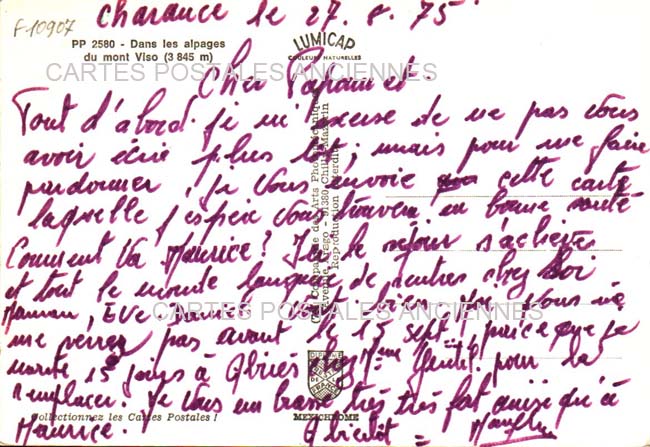 Charance le 27.8.75
F-10907
PP 2580 - Dans les alpages
du mont Viso (3 845 m)
LUMICAP
COULEURS NATURELLES
CARTES POSTALES ANCIENNES
Cher Papa
Tout d'abord je m'excuse de ne pas vous
avoir écrit plus tôt, mais pour me faire
pardonner, je vous envoie cette carte
laquelle j'espère vous trouvera en bonne santé
Comment va Maurice? Ici le séjour s'achève
et tout le monde de rentrer chez soi
Maman, Eve CARTES POSTALES ANCIENNES vous ne
me verrez pas avant le 15 sept. parce que je
15 jours à Gentil pour la
remplacer. Je vous embrasse très très fort ainsi qu'à
Collectionnez les Cartes Postales !
MEXICHROME
Maurice. A bientôt =
Reproduction interdite